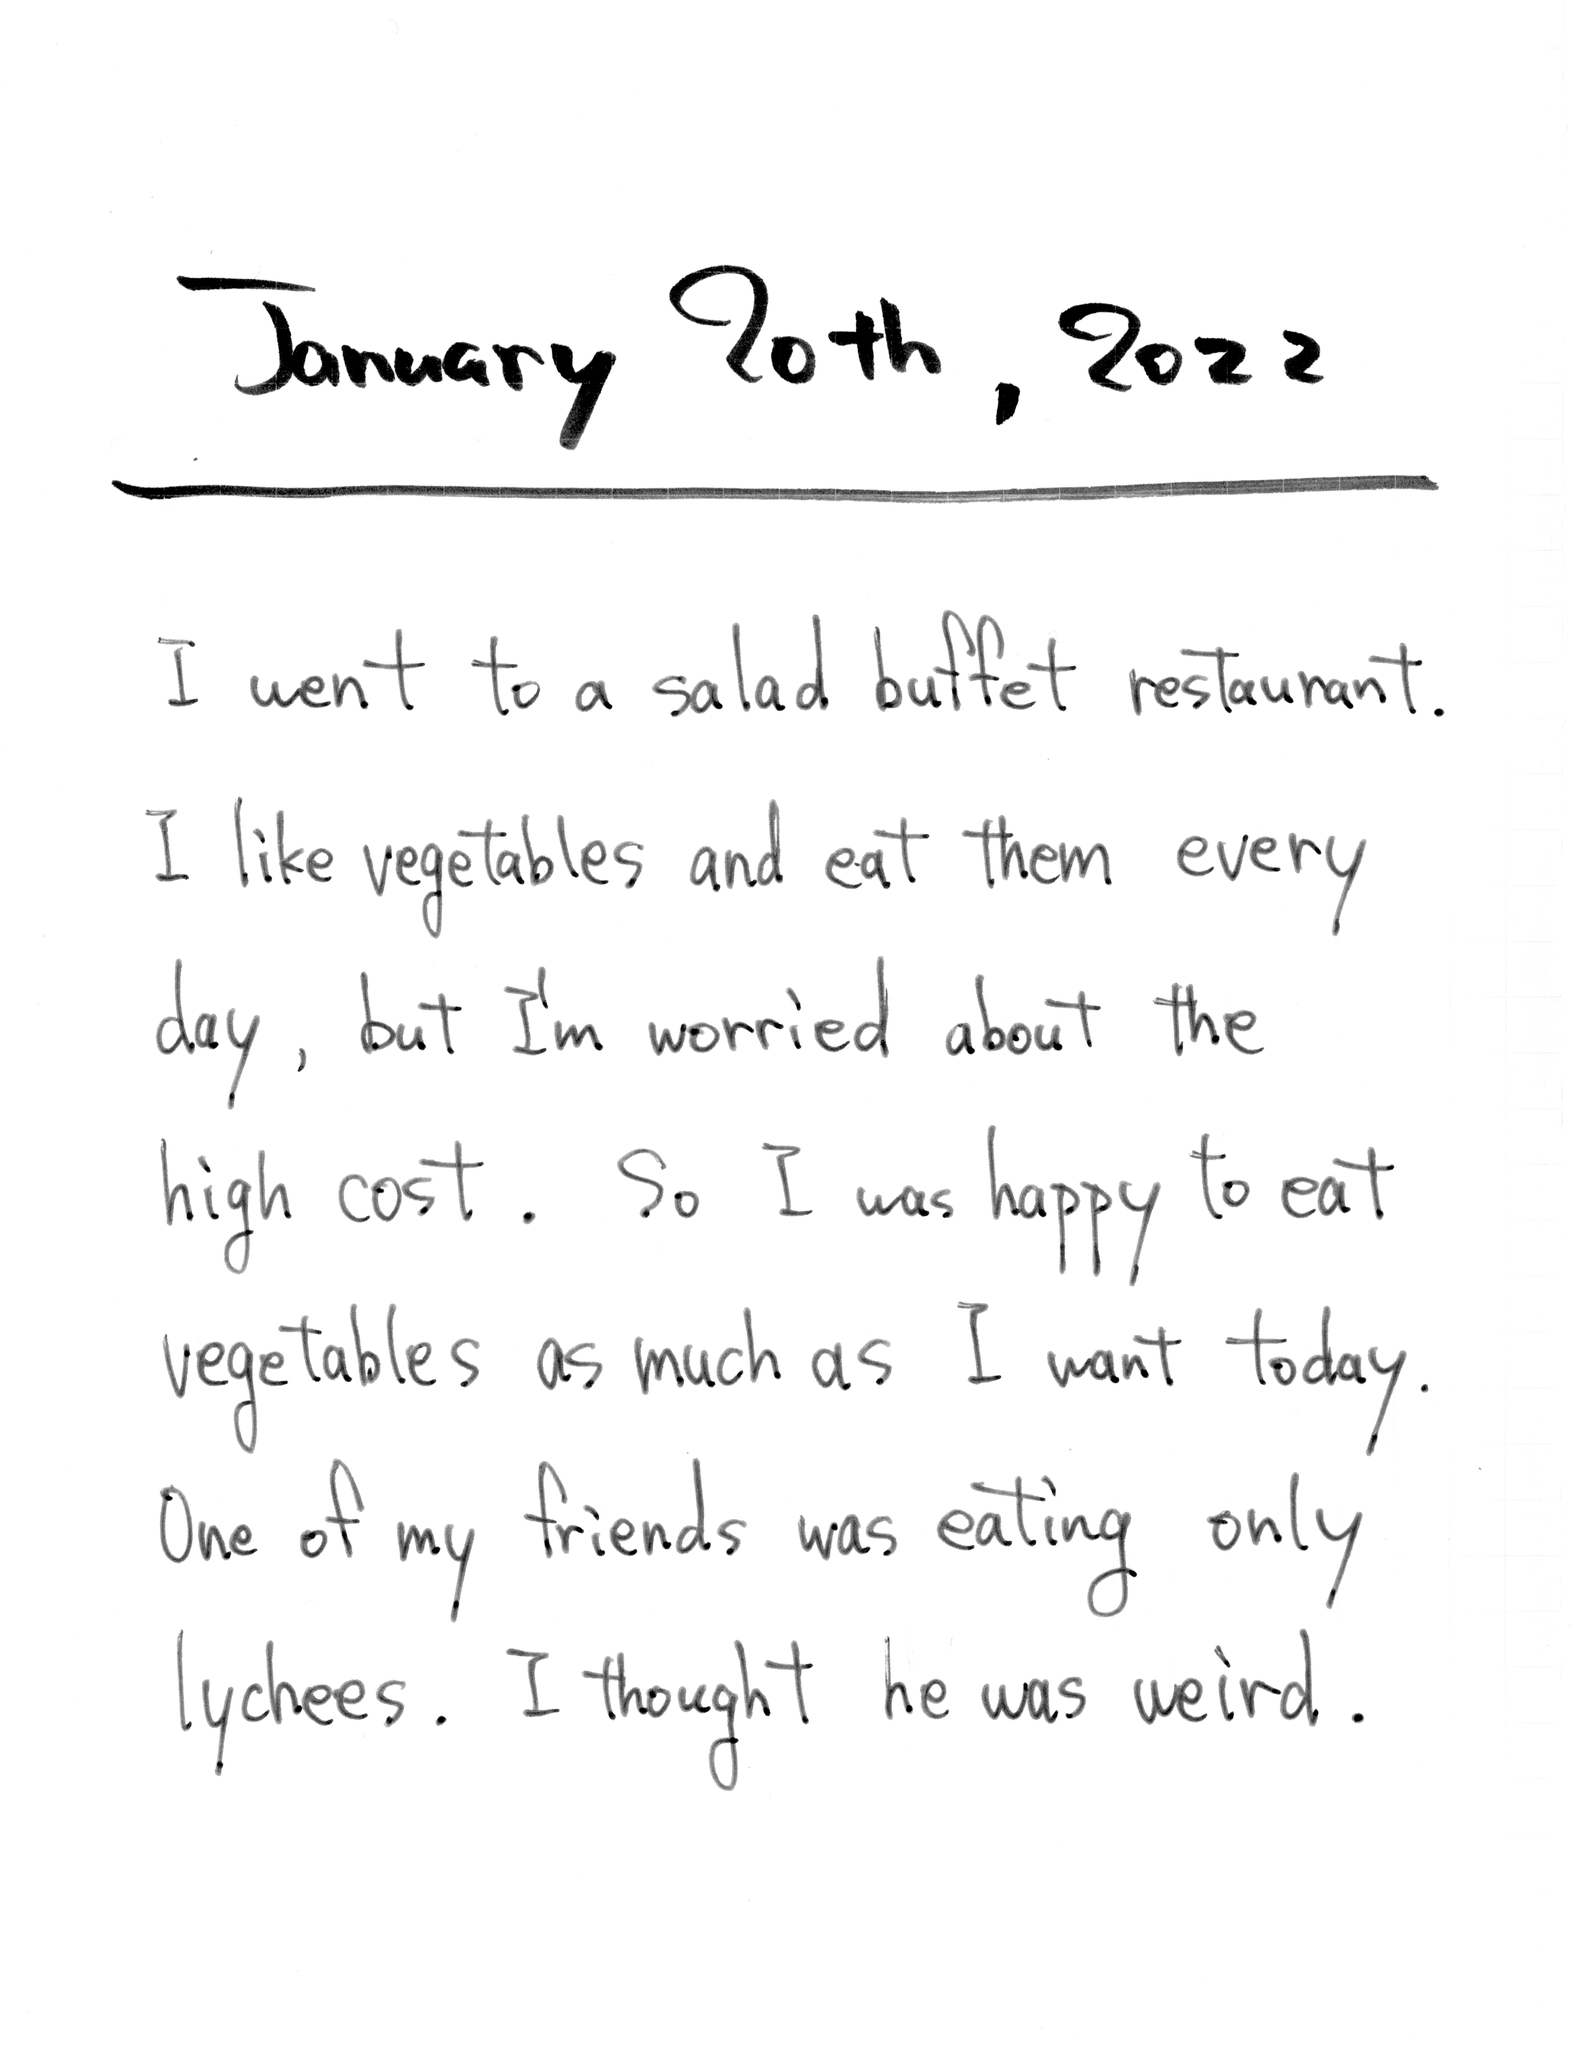 January 20th, 2022
I went to a salad buffet restaurant.
I like vegetables and eat them every
day, but I'm worried about the
high cost. So I was happy to eat
vegetables as much as I want today.
One of my friends was eating only
lychees. I thought he was weird.